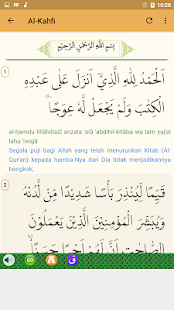 10:28
Al-Kahfi
بِسْمِ اللّٰهِ الرَّحْمٰنِ الرَّحِيْمِ
1
اَلْحَمْدُ لِلّٰهِ الَّذِيْٓ اَنْزَلَ عَلٰى عَبْدِهِ
الْكِتٰبَ وَلَمْ يَجْعَلْ لَّهٗ عِوَجًا
al-ḥamdu lillāhillażī anzala 'alā 'abdihil-kitāba wa lam yaj'al
lahụ 'iwajā
Segala puji bagi Allah yang telah menurunkan Kitab (Al-
Qur'an) kepada hamba-Nya dan Dia tidak menjadikannya
bengkok;
2
قَيِّمًا لِّيُنْذِرَ بَأْسًا شَدِيْدًا مِّنْ لَّدُنْهُ
وَيُبَشِّرَ الْمُؤْمِنِيْنَ الَّذِيْنَ يَعْمَلُوْنَ
الصّٰلِحٰتِ اَنَّ لَهُمْ اَجْرًا حَسَنًا